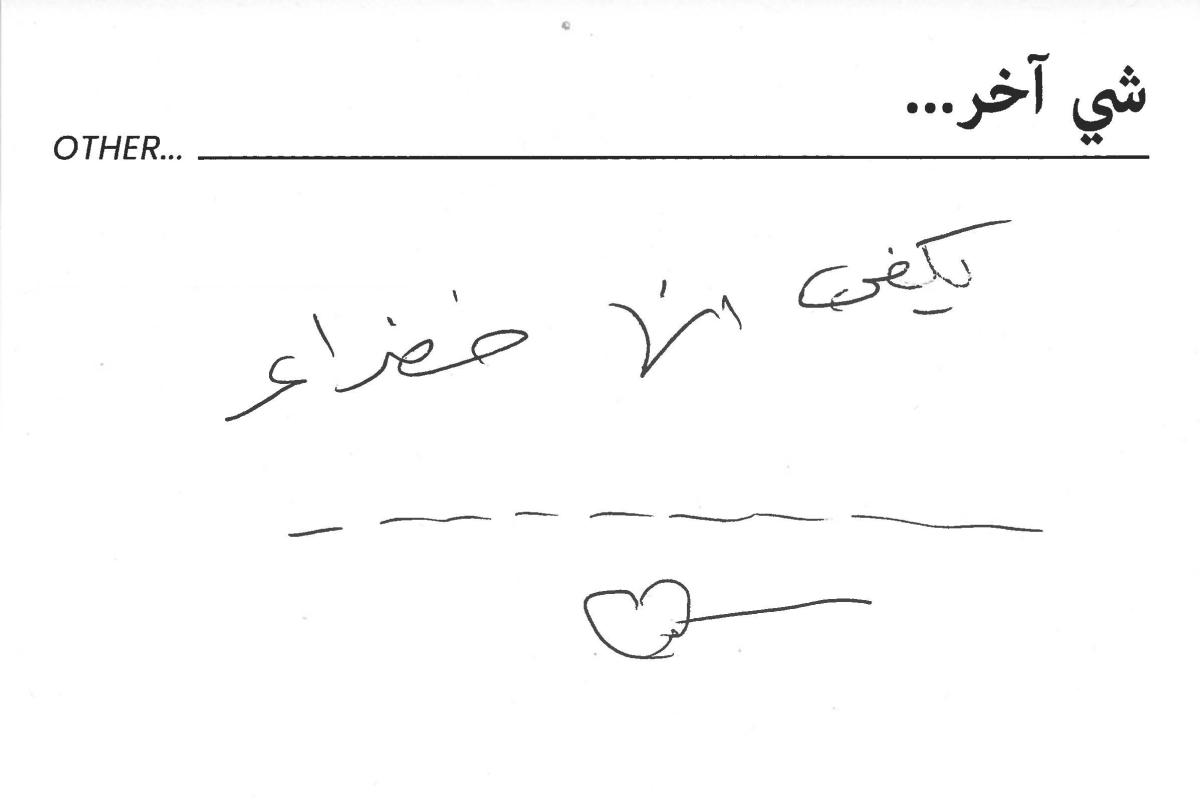 شي آخر...
OTHER...
يكفي انها خضراء